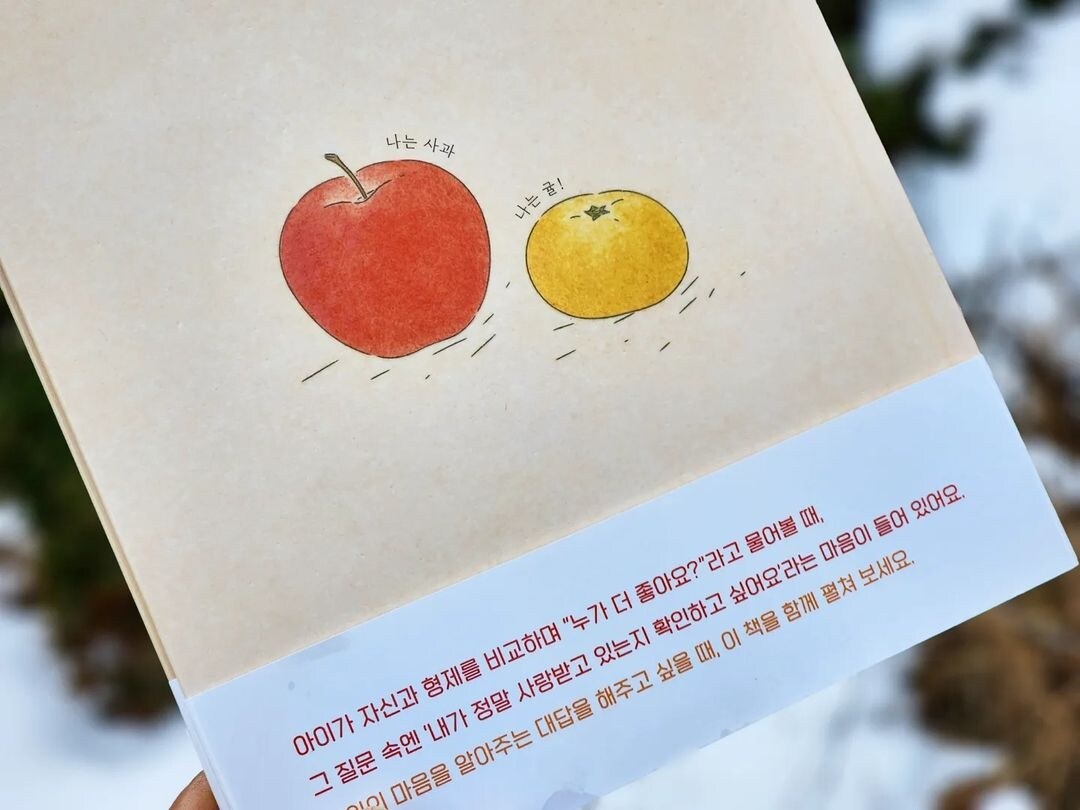 나는 사과
나는 귤!
아이가 자신과 형제를 비교하며 "누가 더 좋아요?"라고 물어볼 때,
그 질문 속엔 '내가 정말 사랑받고 있는지 확인하고 싶어요'라는 마음이 들어 있어요.
마음을 알아주는 대답을 해주고 싶을 때, 이 책을 함께 펼쳐 보세요.